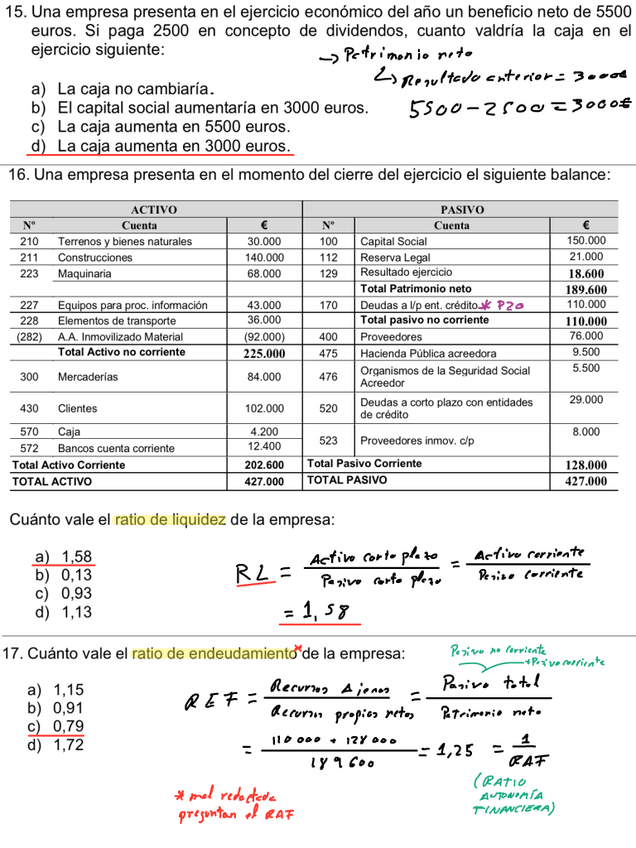 15. Una empresa presenta en el ejercicio económico del año un beneficio neto de 5500
euros. Si paga 2500 en concepto de dividendos, cuanto valdría la caja en el
ejercicio siguiente:
→ Patrimonio neto
↳ Resultado anterior = 3000€
5500 - 2500 = 3000€
a) La caja no cambiaría.
b) El capital social aumentaría en 3000 euros.
c) La caja aumenta en 5500 euros.
d) La caja aumenta en 3000 euros.
16. Una empresa presenta en el momento del cierre del ejercicio el siguiente balance:
ACTIVO PASIVO
Nº Cuenta € Nº Cuenta €
210 Terrenos y bienes naturales 30.000 100 Capital Social 150.000
211 Construcciones 140.000 112 Reserva Legal 21.000
223 Maquinaria 68.000 129 Resultado ejercicio 18.600
Total Patrimonio neto 189.600
227 Equipos para proc. información 43.000 170 Deudas a l/p ent. crédito * P20 110.000
228 Elementos de transporte 36.000 Total pasivo no corriente 110.000
(282) A.A. Inmovilizado Material (92.000) 400 Proveedores 76.000
Total Activo no corriente 225.000 475 Hacienda Pública acreedora 9.500
300 Mercaderías 84.000 476 Organismos de la Seguridad Social 5.500
Acreedor
430 Clientes 102.000 520 Deudas a corto plazo con entidades 29.000
de crédito
570 Caja 4.200 523 Proveedores inmov. c/p 8.000
572 Bancos cuenta corriente 12.400
Total Activo Corriente 202.600 Total Pasivo Corriente 128.000
TOTAL ACTIVO 427.000 TOTAL PASIVO 427.000
Cuánto vale el ratio de liquidez de la empresa:
a) 1,58
b) 0,13
c) 0,93
d) 1,13
RL = Activo corto plazo / Pasivo corto plazo = Activo corriente / Pasivo corriente
= 1,58
17. Cuánto vale el ratio de endeudamiento* de la empresa:
Pasivo no corriente
+ Pasivo corriente
a) 1,15
b) 0,91
c) 0,79
d) 1,72
REF = Recursos Ajenos / Recursos propios netos = Pasivo total / Patrimonio neto
= 110 000 + 128 000 / 189600 = 1,25 = 1 / RAF
(RATIO
AUTONOMÍA
FINANCIERA)
* mal redactada
preguntan el RAF